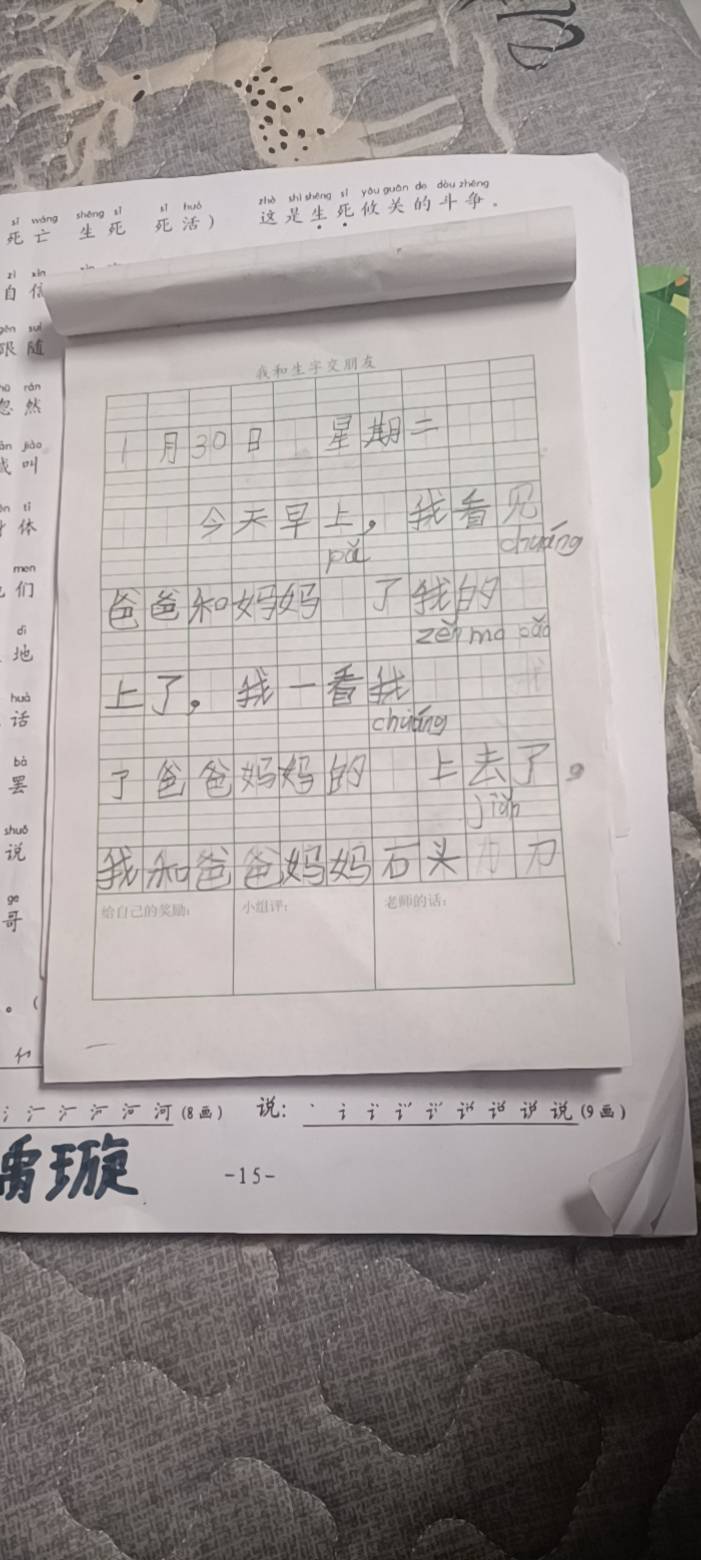 sǐ wáng shēng sǐ sǐ huó zhè shì shēng sǐ yōu guān de dòu zhēng
死亡 生死 死活） 这是生死攸关的斗争。
zì xìn
自信
gēn suí
跟随
hū rán
忽然
jiào
叫
tǐ
体
men
们
dì
地
huà
话
bà
罢
shuō
说
ge
哥
。（
我和生字交朋友
1月30日 星期二
今天早上，我看见
pǎ chuáng
爸爸和妈妈 了我的
zěn ma pǎo
上了，我一看我
chuáng
了爸爸妈妈的 上去了。
jiǎn
我和爸爸妈妈石头 刀
给自己的奖励： 小组评： 老师的话：
河(8画) 说： 说(9画)
-15-